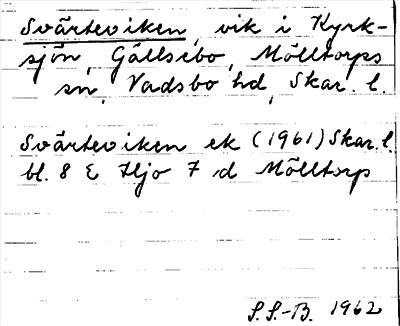 Svärteviken, vik i Kyrk-
sjön, Gällsebo, Mölltorps
sn, Vadsbo hd, Skar. l.
Svärteviken ek (1961) Skar. l.
bl. 8 E Hjo 7 d Mölltorp
S.S.-B. 1962